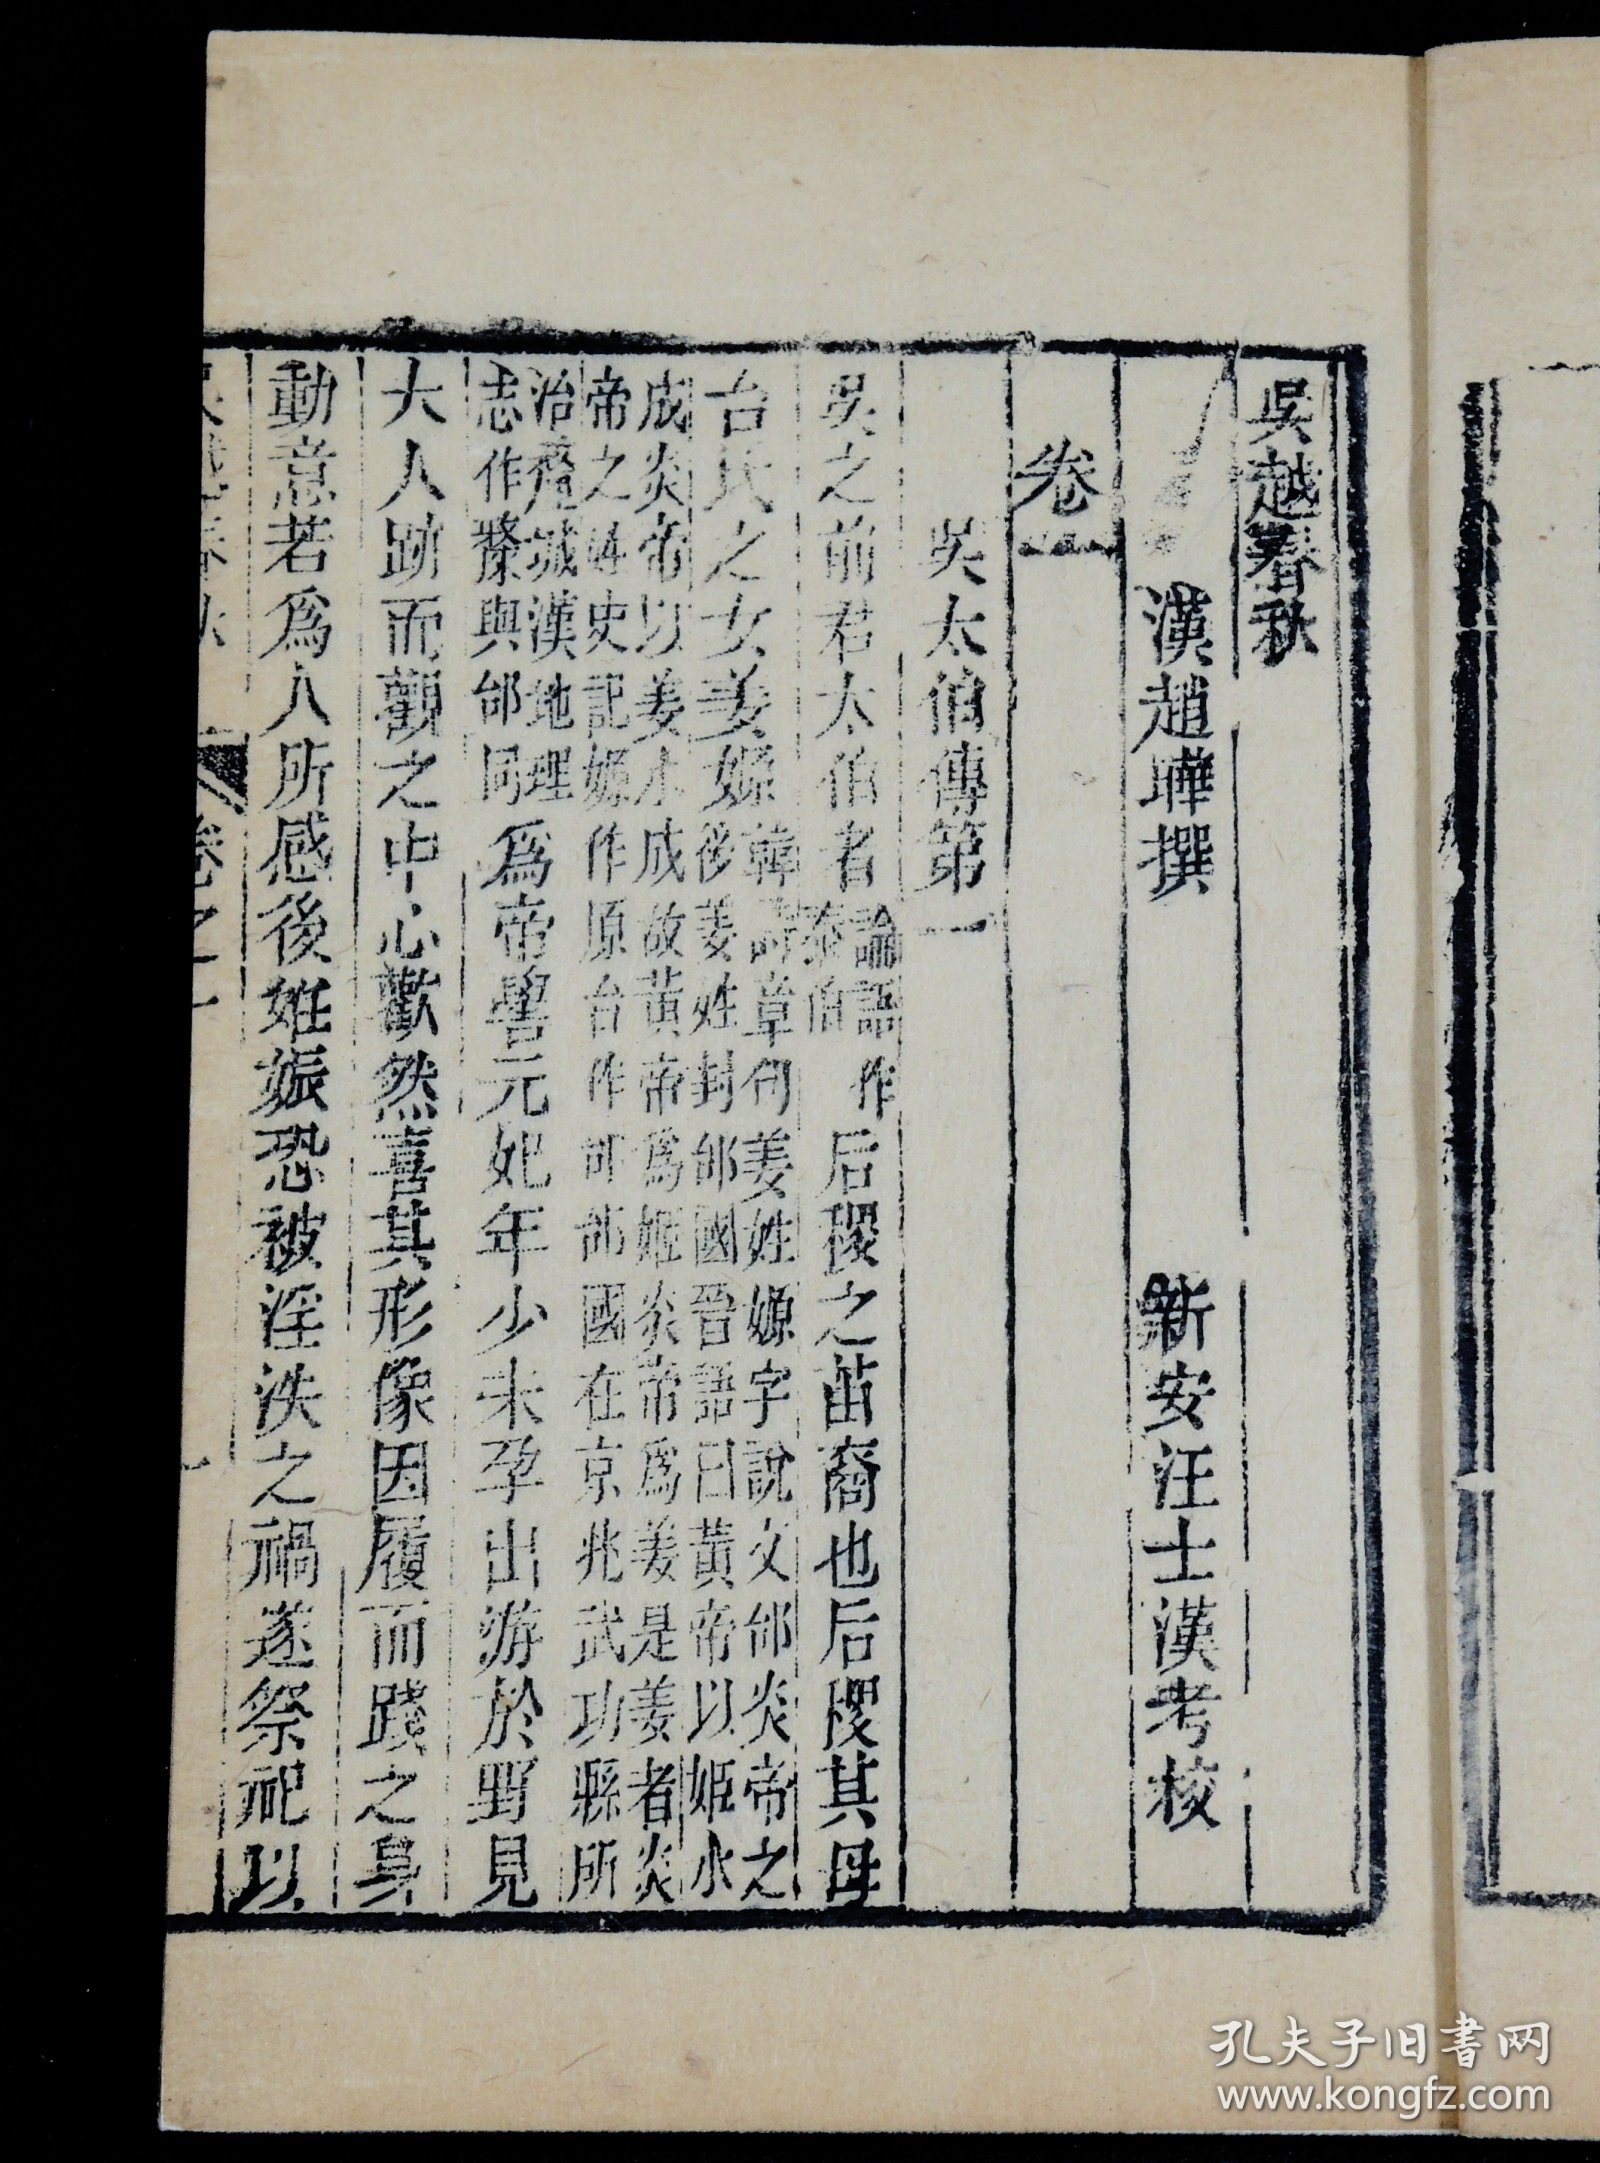 吳越春秋
漢趙曄撰 新安汪士漢考校
卷一
吳太伯傳第一
吳之前君太伯者論語作泰伯后稷之苗裔也后稷其母
台氏之女姜嫄韓詩章句姜姓嫄字說文邰炎帝之後姜姓封邰國晉語曰黃帝以姬水
成炎帝以姜水成故黃帝為姬炎帝為姜是姜者炎帝之姓史記嫄作原台作邰邰國在京兆武功縣所
治斄城漢地理志作斄與邰同為帝嚳元妃年少未孕出游於野見
大人跡而觀之中心歡然喜其形像因履而踐之身
動意若為人所感後姙娠恐被淫泆之禍遂祭祀以
吳越春秋 卷之一 一
孔夫子旧书网
www.kongfz.com